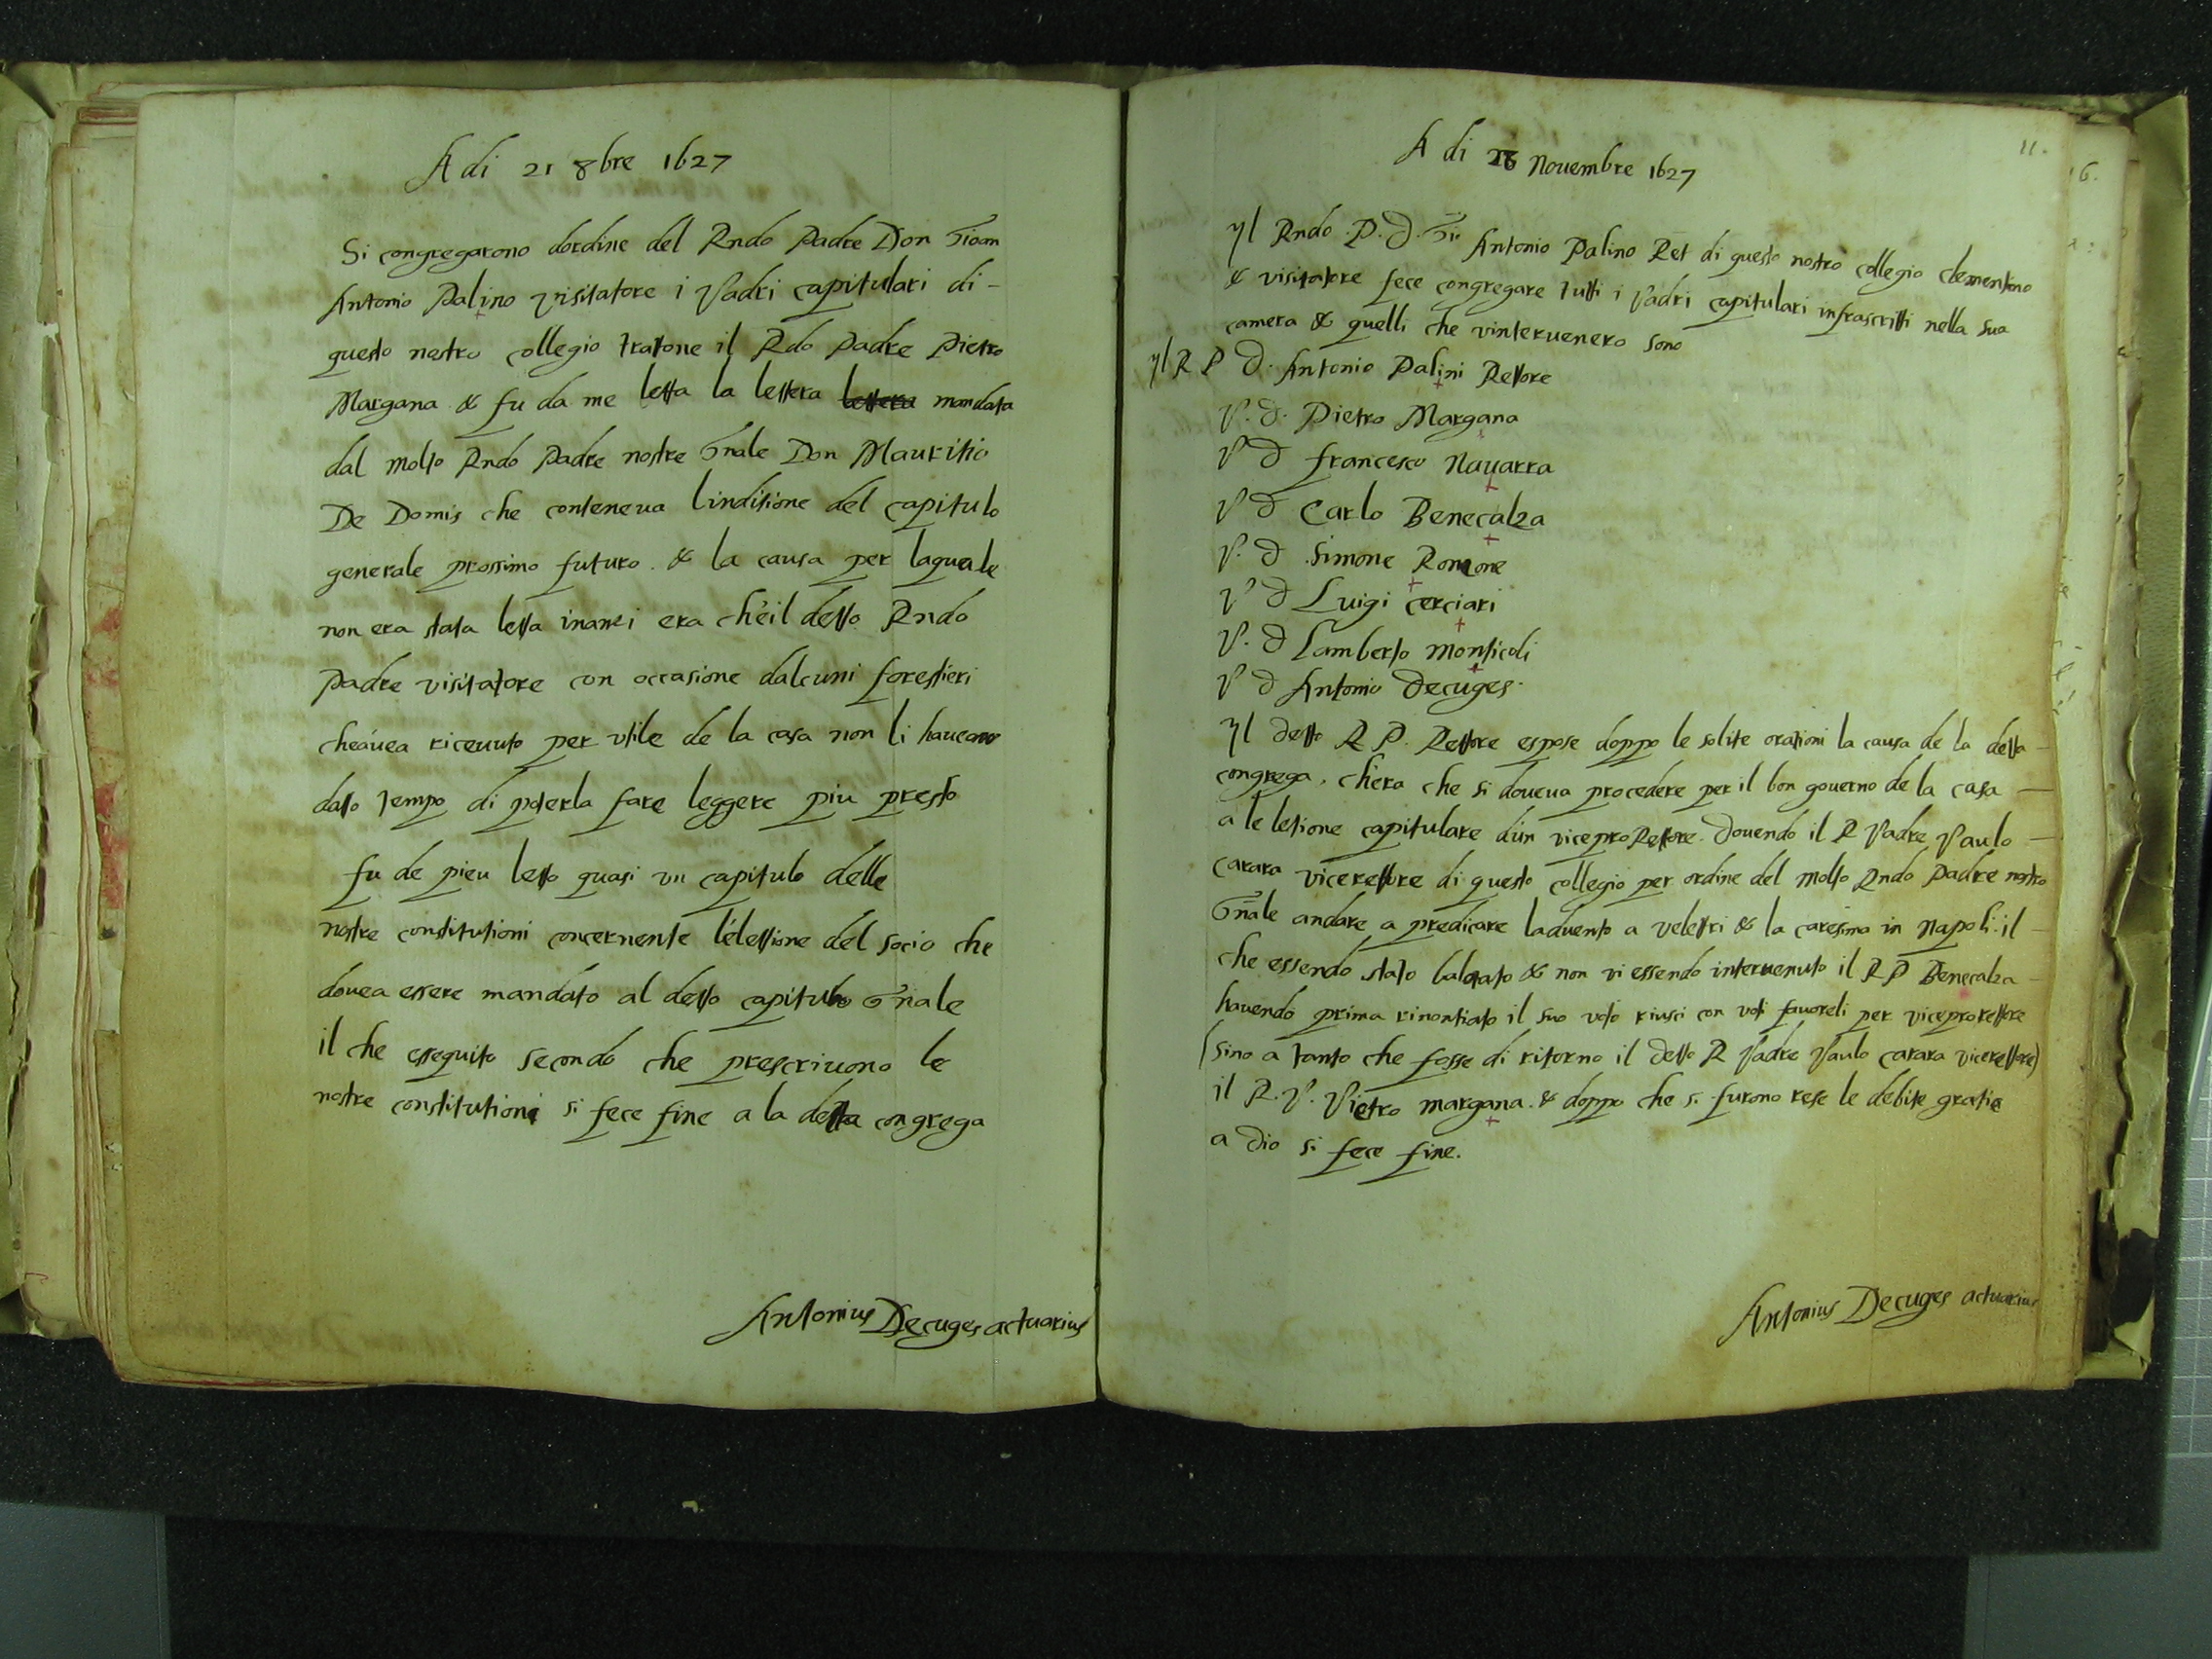 A di 21 8bre 1627
Si congregarono dordine del Rndo Padre Don Gioan
Antonio Palino visitatore i Padri capitulari di -
questo nostro collegio tratone il Rdo Padre Pietro
Margana & fu da me letta la lettera lettera mandata
dal molto Rndo Padre nostre Gnale Don Mauritio
De Domis che conteneua linditione del capitulo
generale prossimo futuro. & la causa per laquale
non era stata letta inanzi era ch'eil detto Rndo
Padre visitatore con occasione dalcuni forestieri
cheáuea riceuuto per vtile de la casa non li haueano
dato tempo di poterla fare leggere piu presto
fu de pieu letto quasi vn capitulo delle
nostre constitutioni concernente l'elettione del socio che
douea essere mandato al detto capitulo Gnale
il che esseguito secondo che prescriuono le
nostre constitutioni si fece fine a la detta congrega
Antonius Decuges actuarius
11.
16.
A di 28 Nouembre 1627
Yl Rndo P. D. Gio Antonio Palino Ret di questo nostro collegio clementino
& visitatore fece congregare tutti i Padri capitulari infrascritti nella sua
camera & quelli che vinteruenero sono
Yl R P D. Antonio Palini Rettore
P. D. Pietro Margana
P D francesco Nauarra
P D Carlo Benecalza
P. D Simone Ronzone
P D Luigi cerciari
P. D Lamberto monticoli
P D Antonio Decuges.
Yl detto R P. Rettore espose doppo le solite orationi la causa de la detta -
congrega, ch'era che si doueua procedere per il bon gouerno de la casa -
a le letione capitulare d'un viceproRettore. Douendo il R Padre Paulo -
carara vicerettore di questo collegio per ordine del molto Rndo Padre nostro
Gnale andare a predicare laduento a veletri & la caresima in Napoli: il -
che essendo stato balotato & non vi essendo interuenuto il R P Benecalza -
hauendo prima rinontiato il suo voto riusci con voti fauoreli per viceprorettore
(sino a tanto che fosse di ritorno il detto R Padre Paulo carara vicerettore)
il R. P. Pietro margana. & doppo che si furono rese le debite gratie
a Dio si fece fine.
Antonius Decuges actuarius